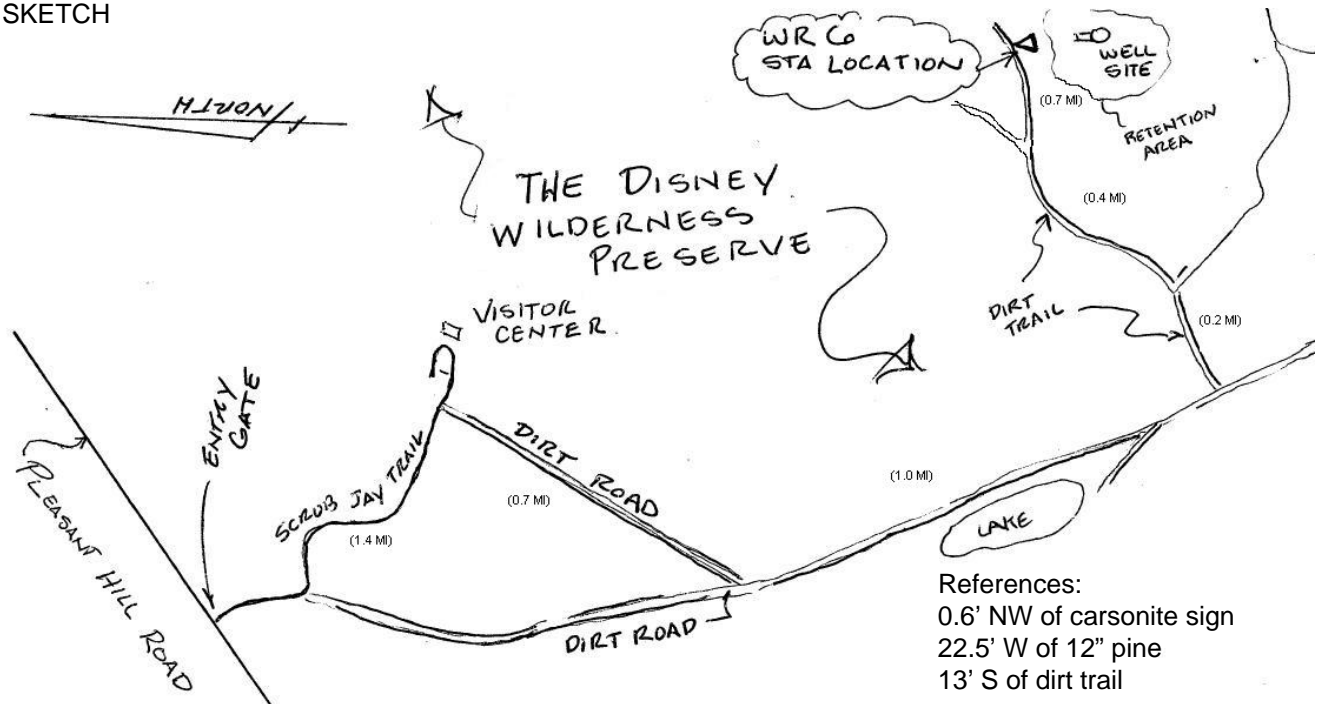 SKETCH
WR 6
STA LOCATION
WELL
SITE
(0.7 MI)
RETENTION
AREA
NORTH
THE DISNEY
WILDERNESS
PRESERVE
(0.4 MI)
DIRT
TRAIL
(0.2 MI)
VISITOR
CENTER
ENTRY
GATE
PLEASANT HILL ROAD
SCRUB JAY TRAIL
(1.4 MI)
DIRT ROAD
(0.7 MI)
(1.0 MI)
LAKE
DIRT ROAD
References:
0.6’ NW of carsonite sign
22.5’ W of 12” pine
13’ S of dirt trail